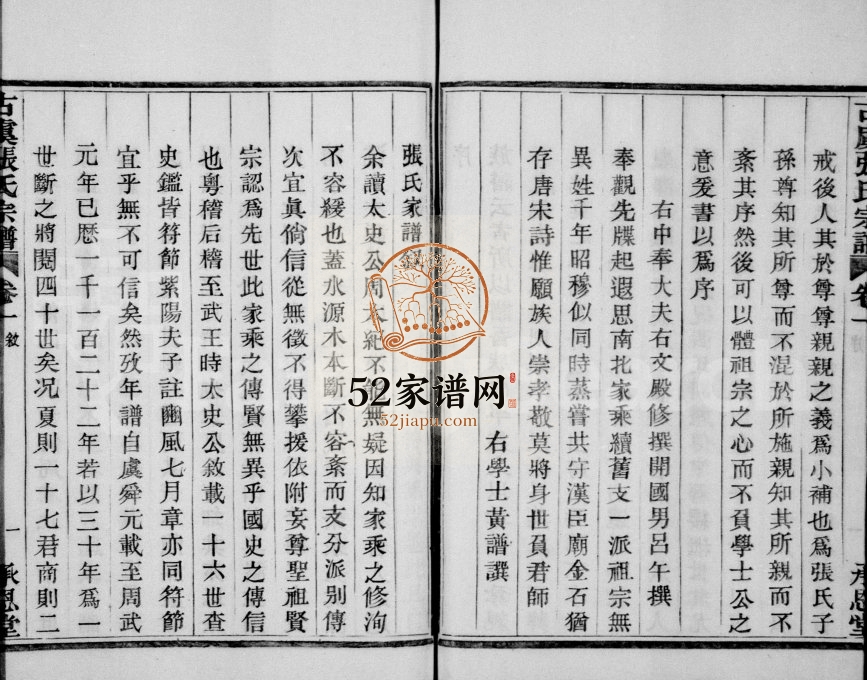 戒後人其於尊尊親親之義爲小補也爲張氏子
孫尊知其所尊而不混於所施親知其所親而不
紊其序然後可以體祖宗之心而不負學士公之
意爰書以爲序
右中奉大夫右文殿修撰開國男呂午撰
奉觀先牒起遐思南北家乘續舊支一派祖宗無
異姓千年昭穆似同時蒸嘗共守漢臣廟金石猶
存唐宋詩惟願族人崇孝敬莫將身世負君師
右學士黃譜撰
張氏家譜
余讀太史公周本紀不能無疑因知家乘之修洵
不容緩也蓋水源木本斷不容紊而支分派別傳
次宜眞倘信從無徵不得攀援依附妄尊聖祖賢
宗認爲先世此家乘之傳賢無異乎國史之傳信
也粵稽后稷至武王時太史公敘載一十六世查
史鑑皆符節紫陽夫子註豳風七月章亦同符節
宜乎無不可信矣然攷年譜自虞舜元載至周武
元年已歷一千一百二十二年若以三十年爲一
世斷之將閱四十世矣况夏則一十七君商則二
古虞張氏宗譜
卷一
敘
一
承恩堂
52家谱网
52jiapu.com